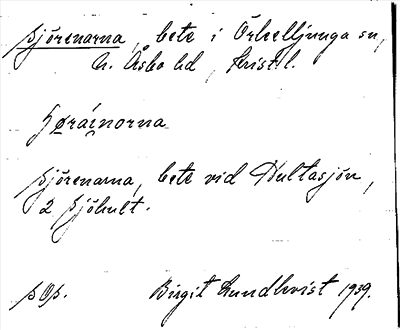 Sjörenarna, bete i Örkelljunga sn,
N. Åsbo hd, Kristil.
Sjörenarna, bete vid Hultasjön,
2 Sjöhult.
Birgit Lundkvist 1939.